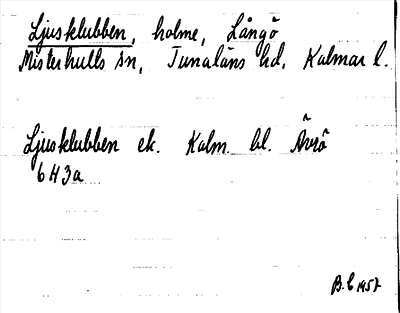 Ljusklubben, holme, Långö
Misterhults sn, Tunaläns hd, Kalmar l.
Ljusklubben ek. Kalm. bl. Ävrö
6 H 3a
B.E 1957